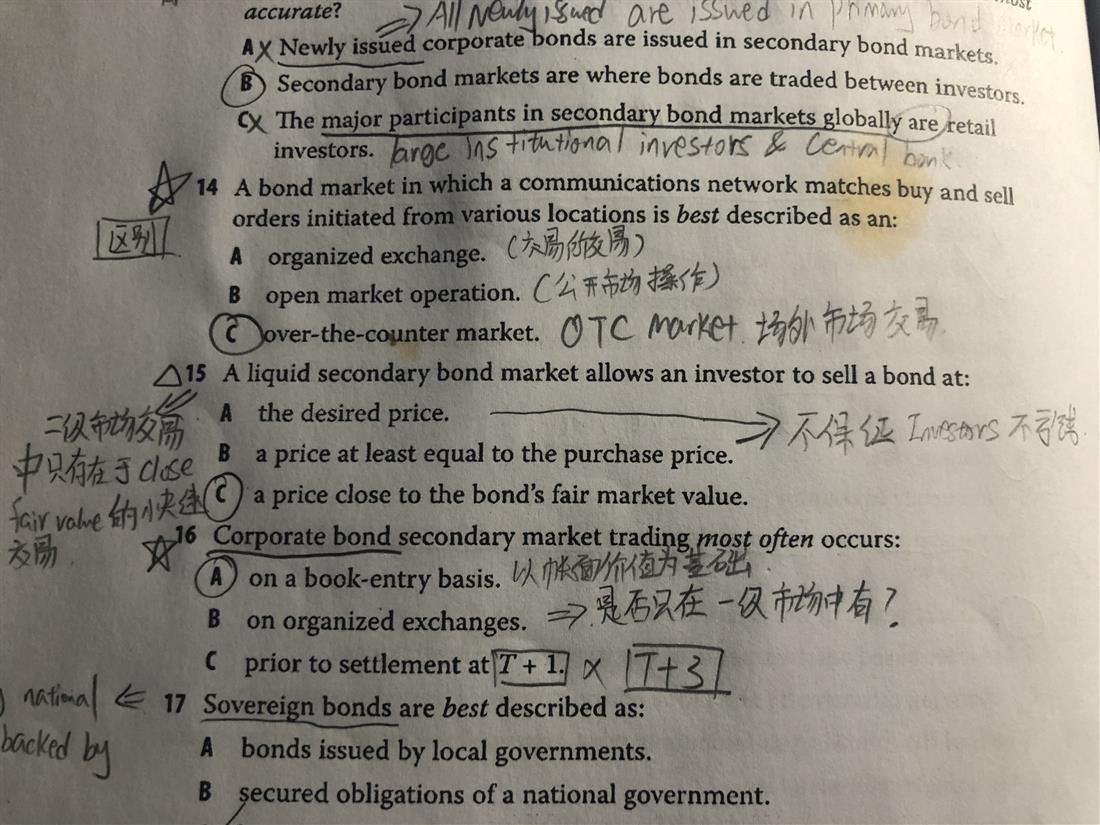 accurate?
⇒ All newly issued are issued in primary bond market.
A X Newly issued corporate bonds are issued in secondary bond markets.
B Secondary bond markets are where bonds are traded between investors.
C X The major participants in secondary bond markets globally are retail
investors. large institutional investors & central bank
☆ 14 A bond market in which a communications network matches buy and sell
区别
orders initiated from various locations is best described as an:
A organized exchange. (交易所交易)
B open market operation. (公开市场操作)
C over-the-counter market. OTC market. 场外市场交易
△ 15 A liquid secondary bond market allows an investor to sell a bond at:
A the desired price. → 不保证 Investors 不亏钱.
B a price at least equal to the purchase price.
C a price close to the bond's fair market value.
二级市场交易
中只存在于 close
fair value 的快速
交易.
☆ 16 Corporate bond secondary market trading most often occurs:
A on a book-entry basis. 以帐面价值为基础.
B on organized exchanges. ⇒ 是否只在一级市场中有?
C prior to settlement at T + 1. X T+3
national ⇐ 17 Sovereign bonds are best described as:
backed by
A bonds issued by local governments.
B secured obligations of a national government.